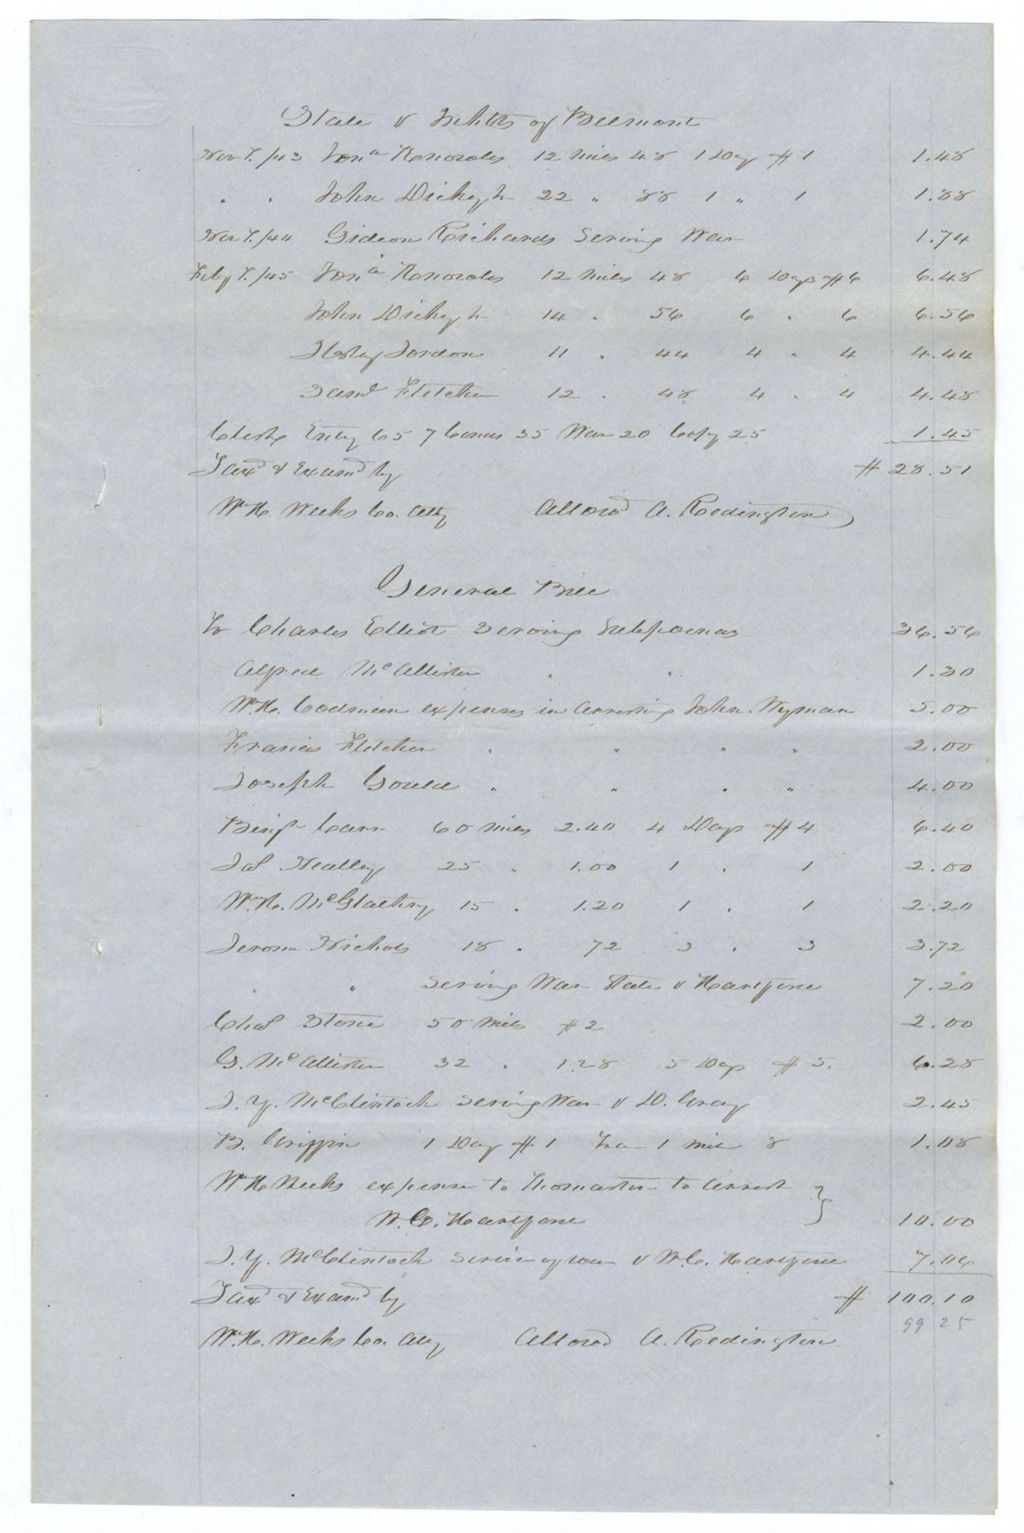 State v Inhbts of Belmont
Nov T. /43 Jona Knowles 12 miles 48 1 Day $1 1.48
" " John Dickey Jr 22 " 88 1 " 1 1.88
Nov T. /44 Gideon Richards Serving War 1.74
Feby T. /45 Jona Knowles 12 Miles 48 6 Days $6 6.48
John Dickey Jr 14 " 56 6 " 6 6.56
Jordon 11 " 44 4 " 4 4.44
Saml Fletcher 12 " 48 4 " 4 4.48
Clerks Entry 65 7 Conus 35 War 20 Copy 25 1.45
Taxd & Examd by $28.51
W. H. Weeks Co. Atty Allowd A. Redington
General Bill
To Charles Elliot Serving Subpoenas 36.56
Alfred McAllister " " 1.30
W. H. Codman expenses in Arresting John Wyman 5.00
Francis Fletcher " " " " 2.00
Joseph Gould " " " " 4.00
Benjn Carr 60 miles 2.40 4 Days $4 6.40
Jas Healley 25 " 1.00 1 " 1 2.00
W. H. McGlathry 15 " 1.20 1 " 1 2.20
Jerome Nichols 18 " 72 3 " 3 3.72
" " Serving War State v Hartford 7.20
Chas Stone 50 miles $2 2.00
G. McAllister 32 " 1.28 5 Days $5. 6.28
J. Y. McClintock Serving War v D. Gray 2.45
B. Griffin 1 Day $1 Tra 1 mile 8 1.08
W H Weeks expense to Thomaston to Arrest }
W. C. 10.00
J. Y. McClintock Service of war v W. C. 7.06
Taxd & Examd by $100.10
99 25
W. H. Weeks Co. Atty Allowd A. Redington